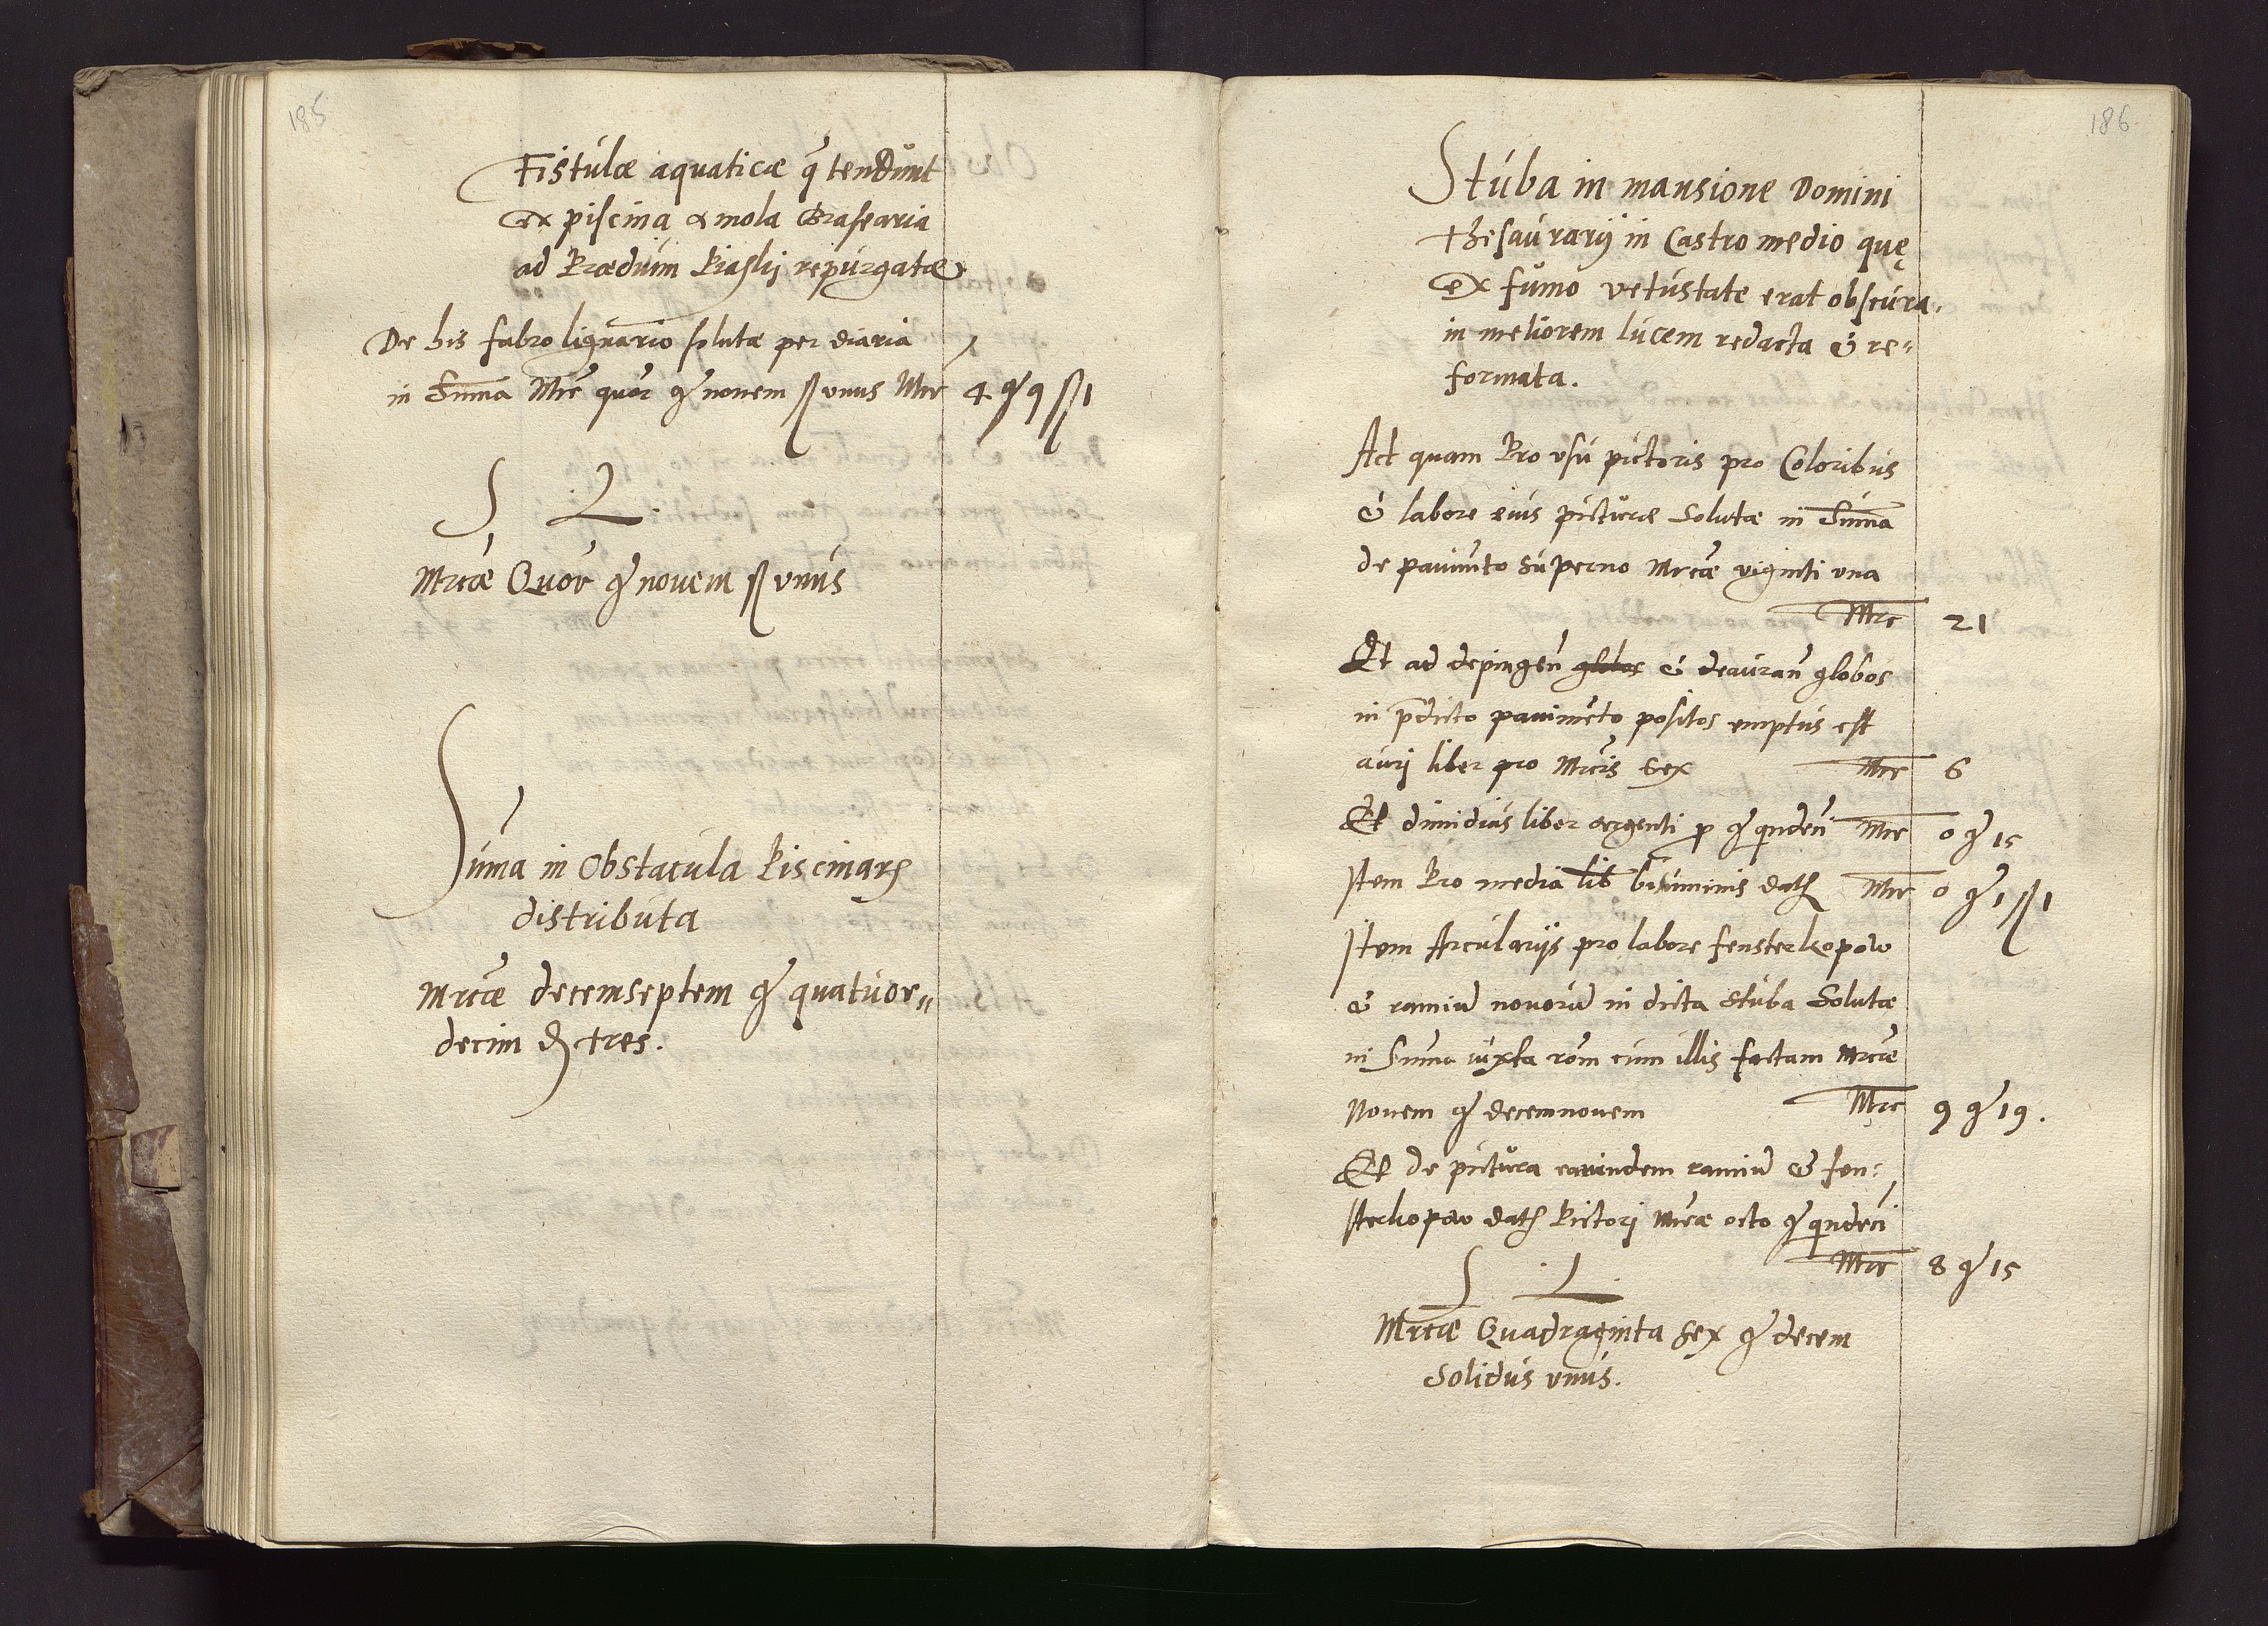 185
Fistulæ aquaticæ q̃ tendunt
ex piscina & mola Brasearia
ad Prædium Piaskj repurgatæ
De his fabro lignario solutæ per diaria
in Suma Mrc quor gr novem ſſ unus Mrc 4 gr 9 ſſ 1
S L
Mrcæ Quor gr novem ſſ unus
Suma in Obstacula Piscinarz
distributa
Mrcæ decemseptem gr quatuor„
decim d tres.
186
Stuba in mansione Domini
thesaurarij in Castro medio quę
ex fumo vetustate erat obscura.
in meliorem lucem redacta & re-
formata.
Ad quam Pro usu pictoris pro Coloribus
& labore eius picturæ Solutæ in Suma
de pavimto superno Mrcæ viginti una
Mrc 21
Et ad depingen globos & deauran globos
in pdicto pavimeto positos emptus est
aurj liber pro Mrcis Sex Mrc 6
Et dimidius liber argenti p gr qndeci Mrc 0 gr 15
Item Pro media lib bituminis dat Mrc 0 gr 1 ſſ 1
Item Arcularijs pro labore fensterkopow
& ramiu novoru in dicta Stuba Solutæ
in Suma iuxta rom cum illis factam Mrcæ
Novem gr decemnovem Mrc 9 gr 19.
Et de pictura earundem ramiu & fen-
sterkopow dat Pictorj Mrcæ octo gr qndeci
Mrc 8 gr 15
S L
Mrcæ Quadraginta Sex gr decem
Solidus unus.